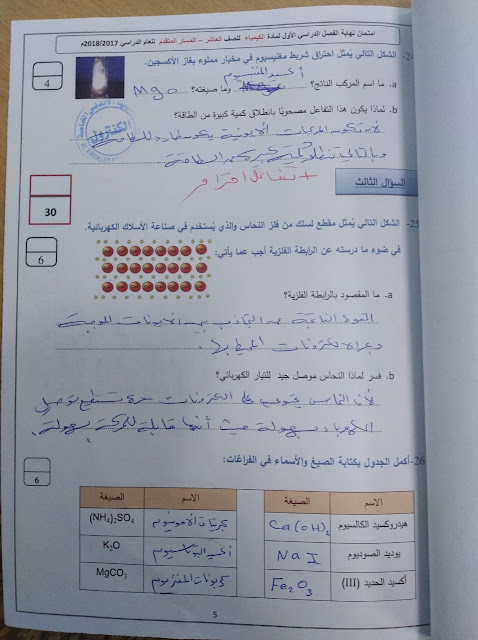 امتحان نهاية الفصل الدراسي الأول لمادة الكيمياء للصف العاشر – المسار المتقدم للعام الدراسي 2018/2017م
24- الشكل التالي يُمثل احتراق شريط مغنيسيوم في مخبار مملوء بغاز الأكسجين.
أكسيد المغنسيوم
a. ما اسم المركب الناتج؟ وما صيغته؟ MgO
4
b. لماذا يكون هذا التفاعل مصحوبًا بانطلاق كمية كبيرة من الطاقة؟
لأن تكوين المركبات الأيونية يكون طارد للطاقة
وبالتالي تنطلق كمية كبيرة من الطاقة
+ تفاعل احترام
الكنترول
السؤال الثالث
30
25- الشكل التالي يُمثل مقطع لسلك من فلز النحاس والذي يُستخدم في صناعة الأسلاك الكهربائية.
في ضوء ما درسته عن الرابطة الفلزية أجب عما يأتي:
6
a. ما المقصود بالرابطة الفلزية؟
القوة الناتجة من التجاذب بين الأيونات الموجبة
وبحر الإلكترونات المحيط بها.
b. فسر لماذا النحاس موصل جيد للتيار الكهربائي؟
لأن النحاس يحتوي على إلكترونات حرة تستطيع توصيل
الكهرباء بسهولة حيث أنها قابلة للحركة بسهولة.
26- أكمل الجدول بكتابة الصيغ والأسماء في الفراغات:
6
الاسم الصيغة الاسم الصيغة
هيدروكسيد الكالسيوم Ca(OH)₂ كبريتات الأمونيوم (NH₄)₂SO₄
يوديد الصوديوم NaI أكسيد البوتاسيوم K₂O
أكسيد الحديد (III) Fe₂O₃ كربونات المغنزيوم MgCO₃
5